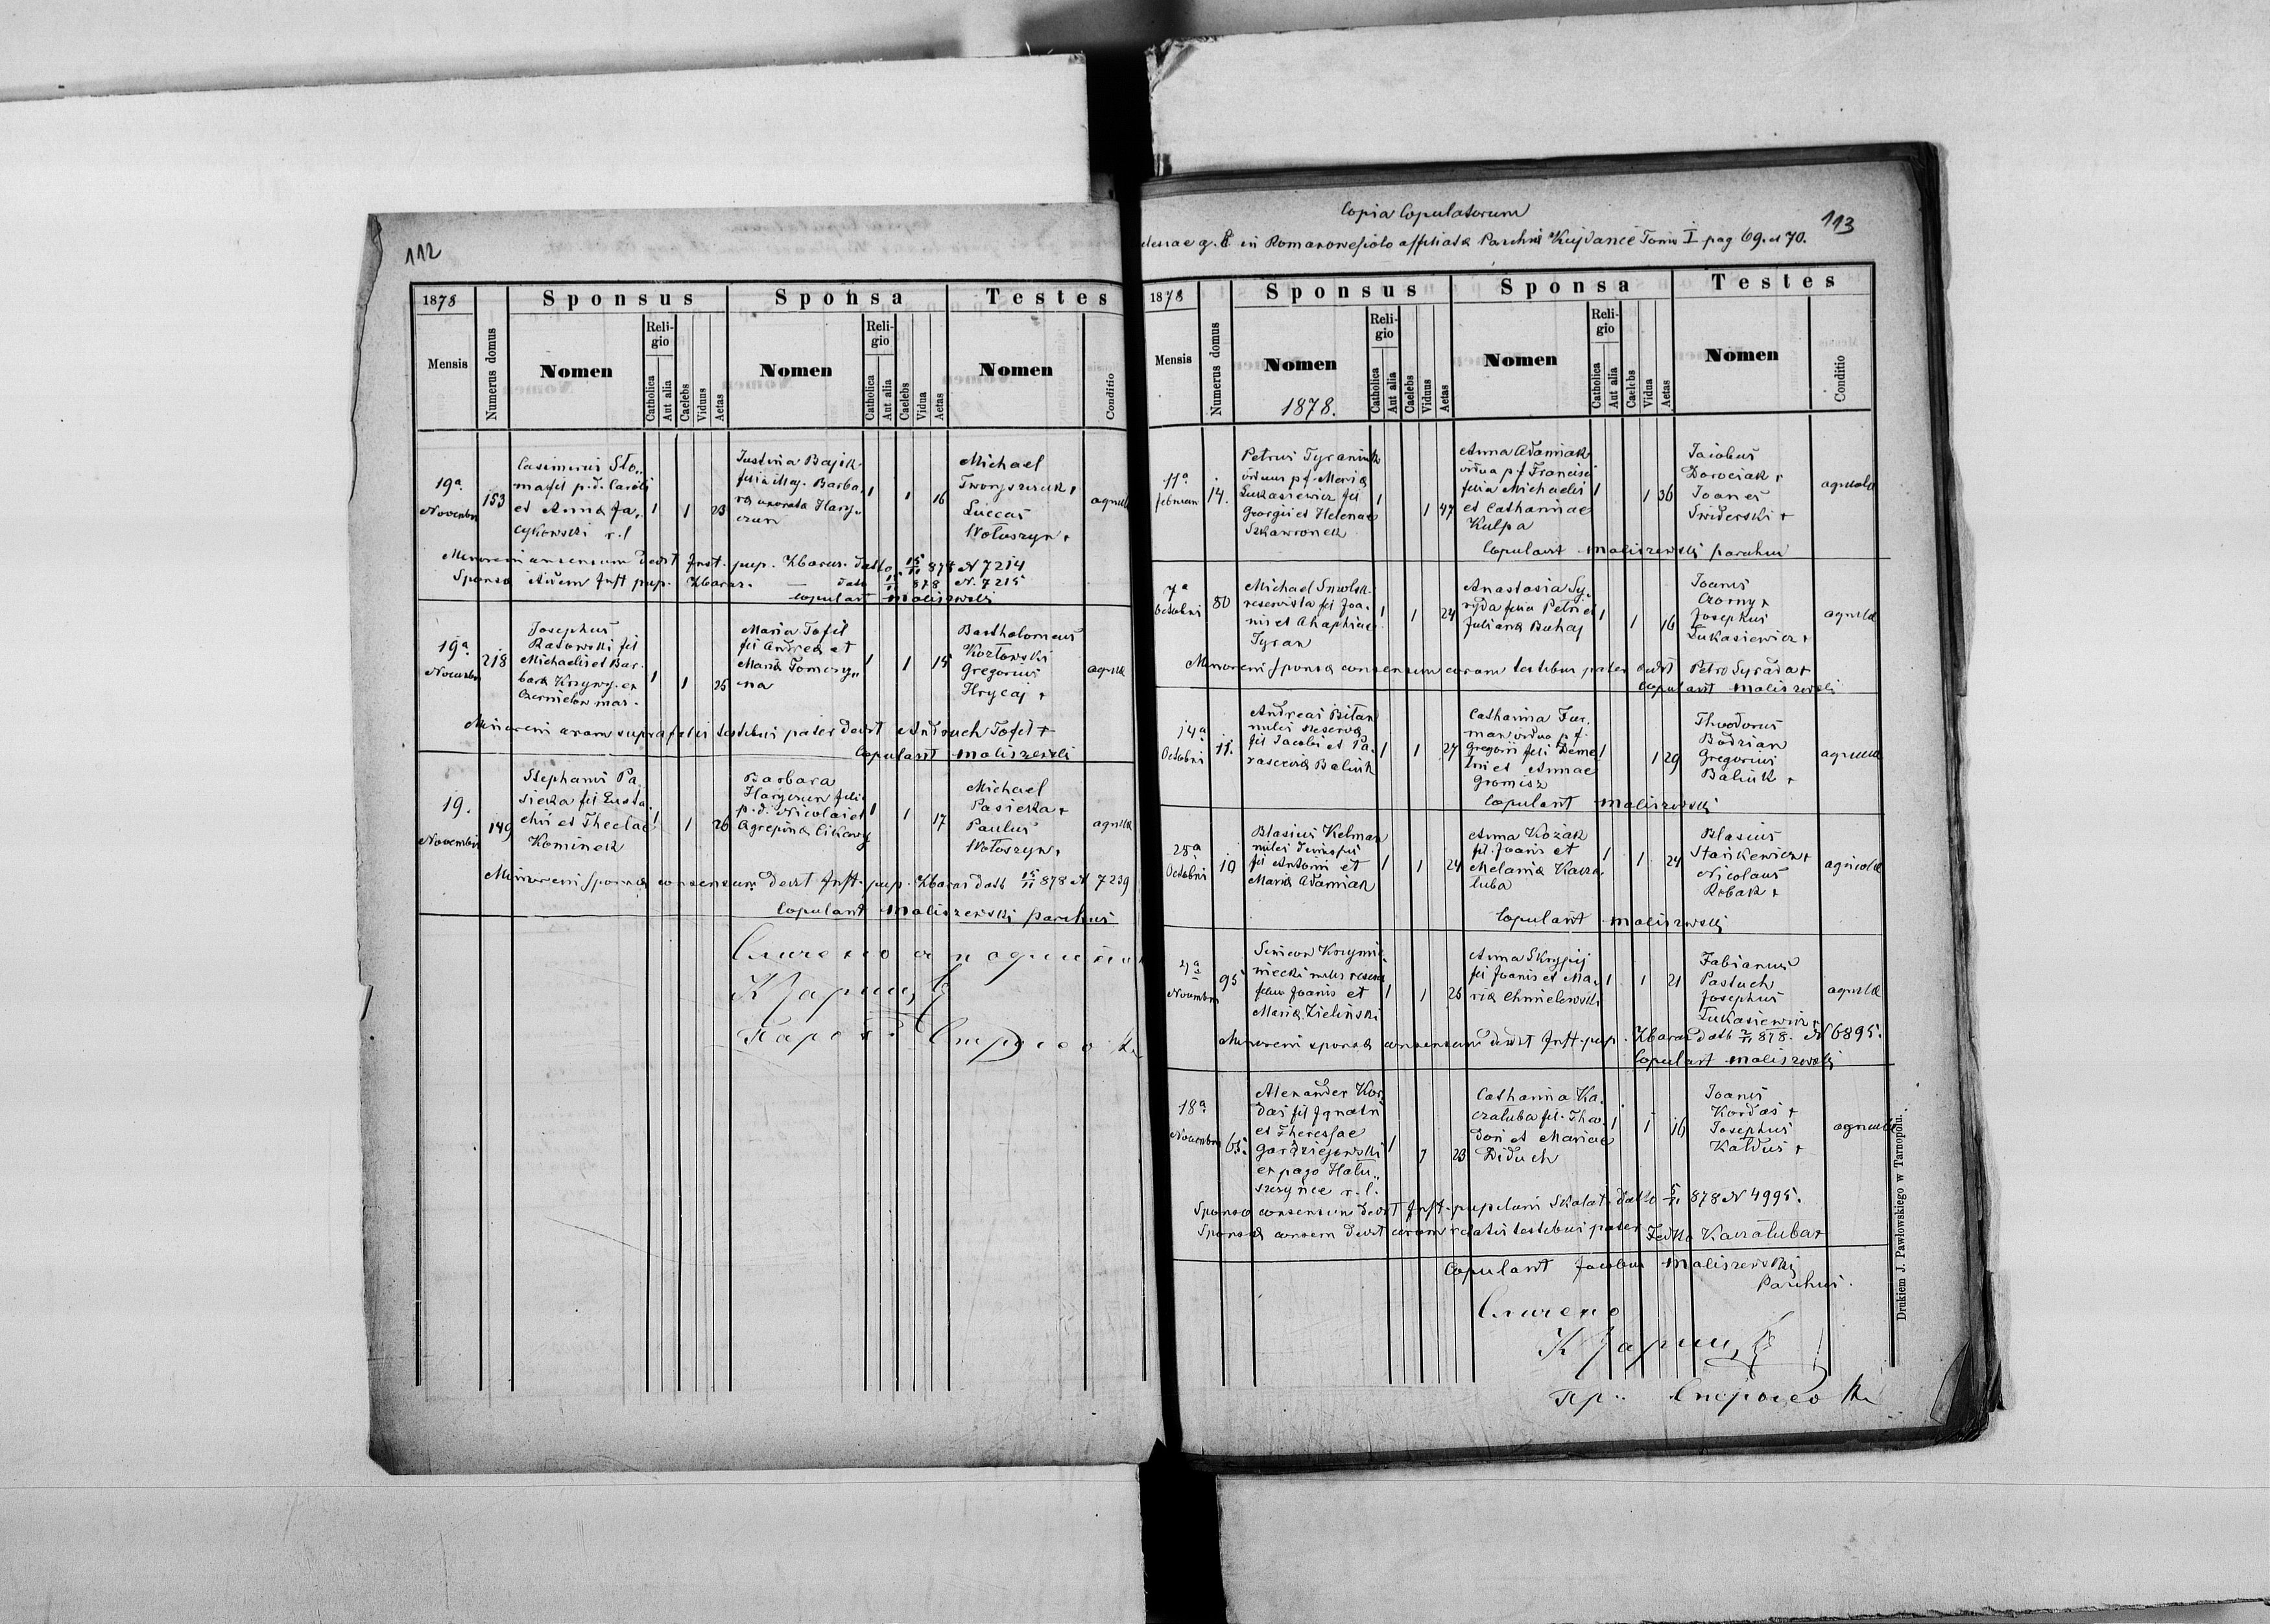 112
1878
Sponsus
Sponsa
Testes
Mensis
Numerus domus
Nomen
Religio
Catholica
Aut alia
Caelebs
Viduus
Aetas
Nomen
Religio
Catholica
Aut alia
Caelebs
Vidua
Aetas
Nomen
Conditio
19a
Novembri
153
Casimirus Sło„
ma fil p.d. Caroli
et Anna Ja„
cykowski r.l
1
1
23
Justina Bajik
filia Mag. Barba„
ra Harg„
czun
1
1
16
Michael
Tworyszczuk +
Luccas
Wołoszyn +
Minoreni consensum dedit Inst. pup. Zbaraz. datto 15/11 878 N 7214
Sponso Inst pup. Zbaraz. — datt 15/11 878 N. 7215
Copulavit Maliszewski
19a
Novembri
218
Josephus
Ratowski fil
Michaelis et Bar„
bara Krzywy. ex
Czernielow maz.
1
1
25
Maria Tofil
fil Andrea et
Maria Tomczy„
na
1
1
15
Bartholomeus
Kozłowski
Gregorius
Hrycaj +
Minoreni coram supra fatis testibus pater dedit Andruch Tofel +
Copulavit Maliszewski
19.
Novembri
149
Stephanus Pa„
sieka fil Eusta„
chii et Theclae
Kominek
1
1
26
Barbara
Harczun filia
p.d. Nicolai et
Agrepina Cikawy
1
1
17
Michael
Pasieka +
Paulus
Wołoszyn +
Minoreni sponsa consensum dedit Inst. pup. Zbaraz datt 15/11 878 N 7239
Copulavit Maliszewski parochus
113
Copia Copulatorum
g. c. in Romanowesioło affiliata Parochia Kujdance Tomi I pag 69. et 70.
1878
Sponsus
Sponsa
Testes
Mensis
Numerus domus
Nomen
1878.
Religio
Catholica
Aut alia
Caelebs
Viduus
Aetas
Nomen
Religio
Catholica
Aut alia
Caelebs
Vidua
Aetas
Nomen
Conditio
11a
februari
14.
Petrus Tyraniuk
viduus p.f. Maria
Łukasiewicz fil
Georgii et Helenae
Szkawronek
1
1
47
Anna Adamiak
vidua p.f. Francisci
filia Michaelis
et Catharinae
Kulpa
1
1
36
Jacobus
Dorociak +
Joanes
Swiderski +
agricola
Copulavit Maliszewski parochus
7a
Octobri
80
Michael Smolsk
reservista fil Joa„
nis et Ahaphiae
Tyran
1
1
24
Anastasia Sy„
ryda filia Petri et
Juliana Buhaj
1
1
16
Joanes
Czorny +
Josephus
Łukasiewicz +
Minoreni sponsa consensum coram testibus pater dedit Petro Syrada +
Copulavit Maliszewski
14a
Octobri
11.
Andreas Bitan
miles Reserva
fil Jacobi et Pa„
rascewia Baluk
1
1
27
Catharina Fur„
man vidua p.f.
Gregorii fili Deme„
trii et Annae
Gromisz
1
1
29
Theodorus
Bodzian
Gregorius
Baluk +
Copulavit Maliszewski
28a
Octobri
10
Blasius Kelman
miles
fil Antoni et
Maria Adamiak
1
1
24
Anna Kozak
fil. Joanis et
Melania Kacza„
łuba
1
1
24
Blasius
Stankiewicz +
Nicolaus
Robak +
agricola
Copulavit Maliszewski
4a
Novembri
95
Simeon Krzymie„
niecki miles reserva
filius Joanis et
Maria Zieliński
1
1
26
Anna Skrypij
fil Joanis et Ma„
ria Chmielewski
1
1
21
Fabianus
Pastuch
Josephus
Łukasiewicz +
Minoreni sponsa consensum dedit Inst. pup. Zbaraz datt 2/11 878. N 6895.
Copulavit Maliszewski
18a
Novembri
65.
Alexander Kor„
das fil Ignatii
et Theressae
Gardziejewski
ex pago Hału„
szczynce r.l.
1
1
23
Catharina Ka„
czałuba fil. Theo„
dori et Mariae
Diduch
1
1
16
Joanes
Kordas +
Josephus
Kałdus +
Sponso consensum dedit Inst. pupilari Skałat datto 5/11 878 N 4995.
Sponsa consen dedit coram relatis testibus pater Fedko Kaczałuba +
Copulavit Jacobus Maliszewski
Parochus.
Drukiem J. Pawłowskiego w Tarnopolu.